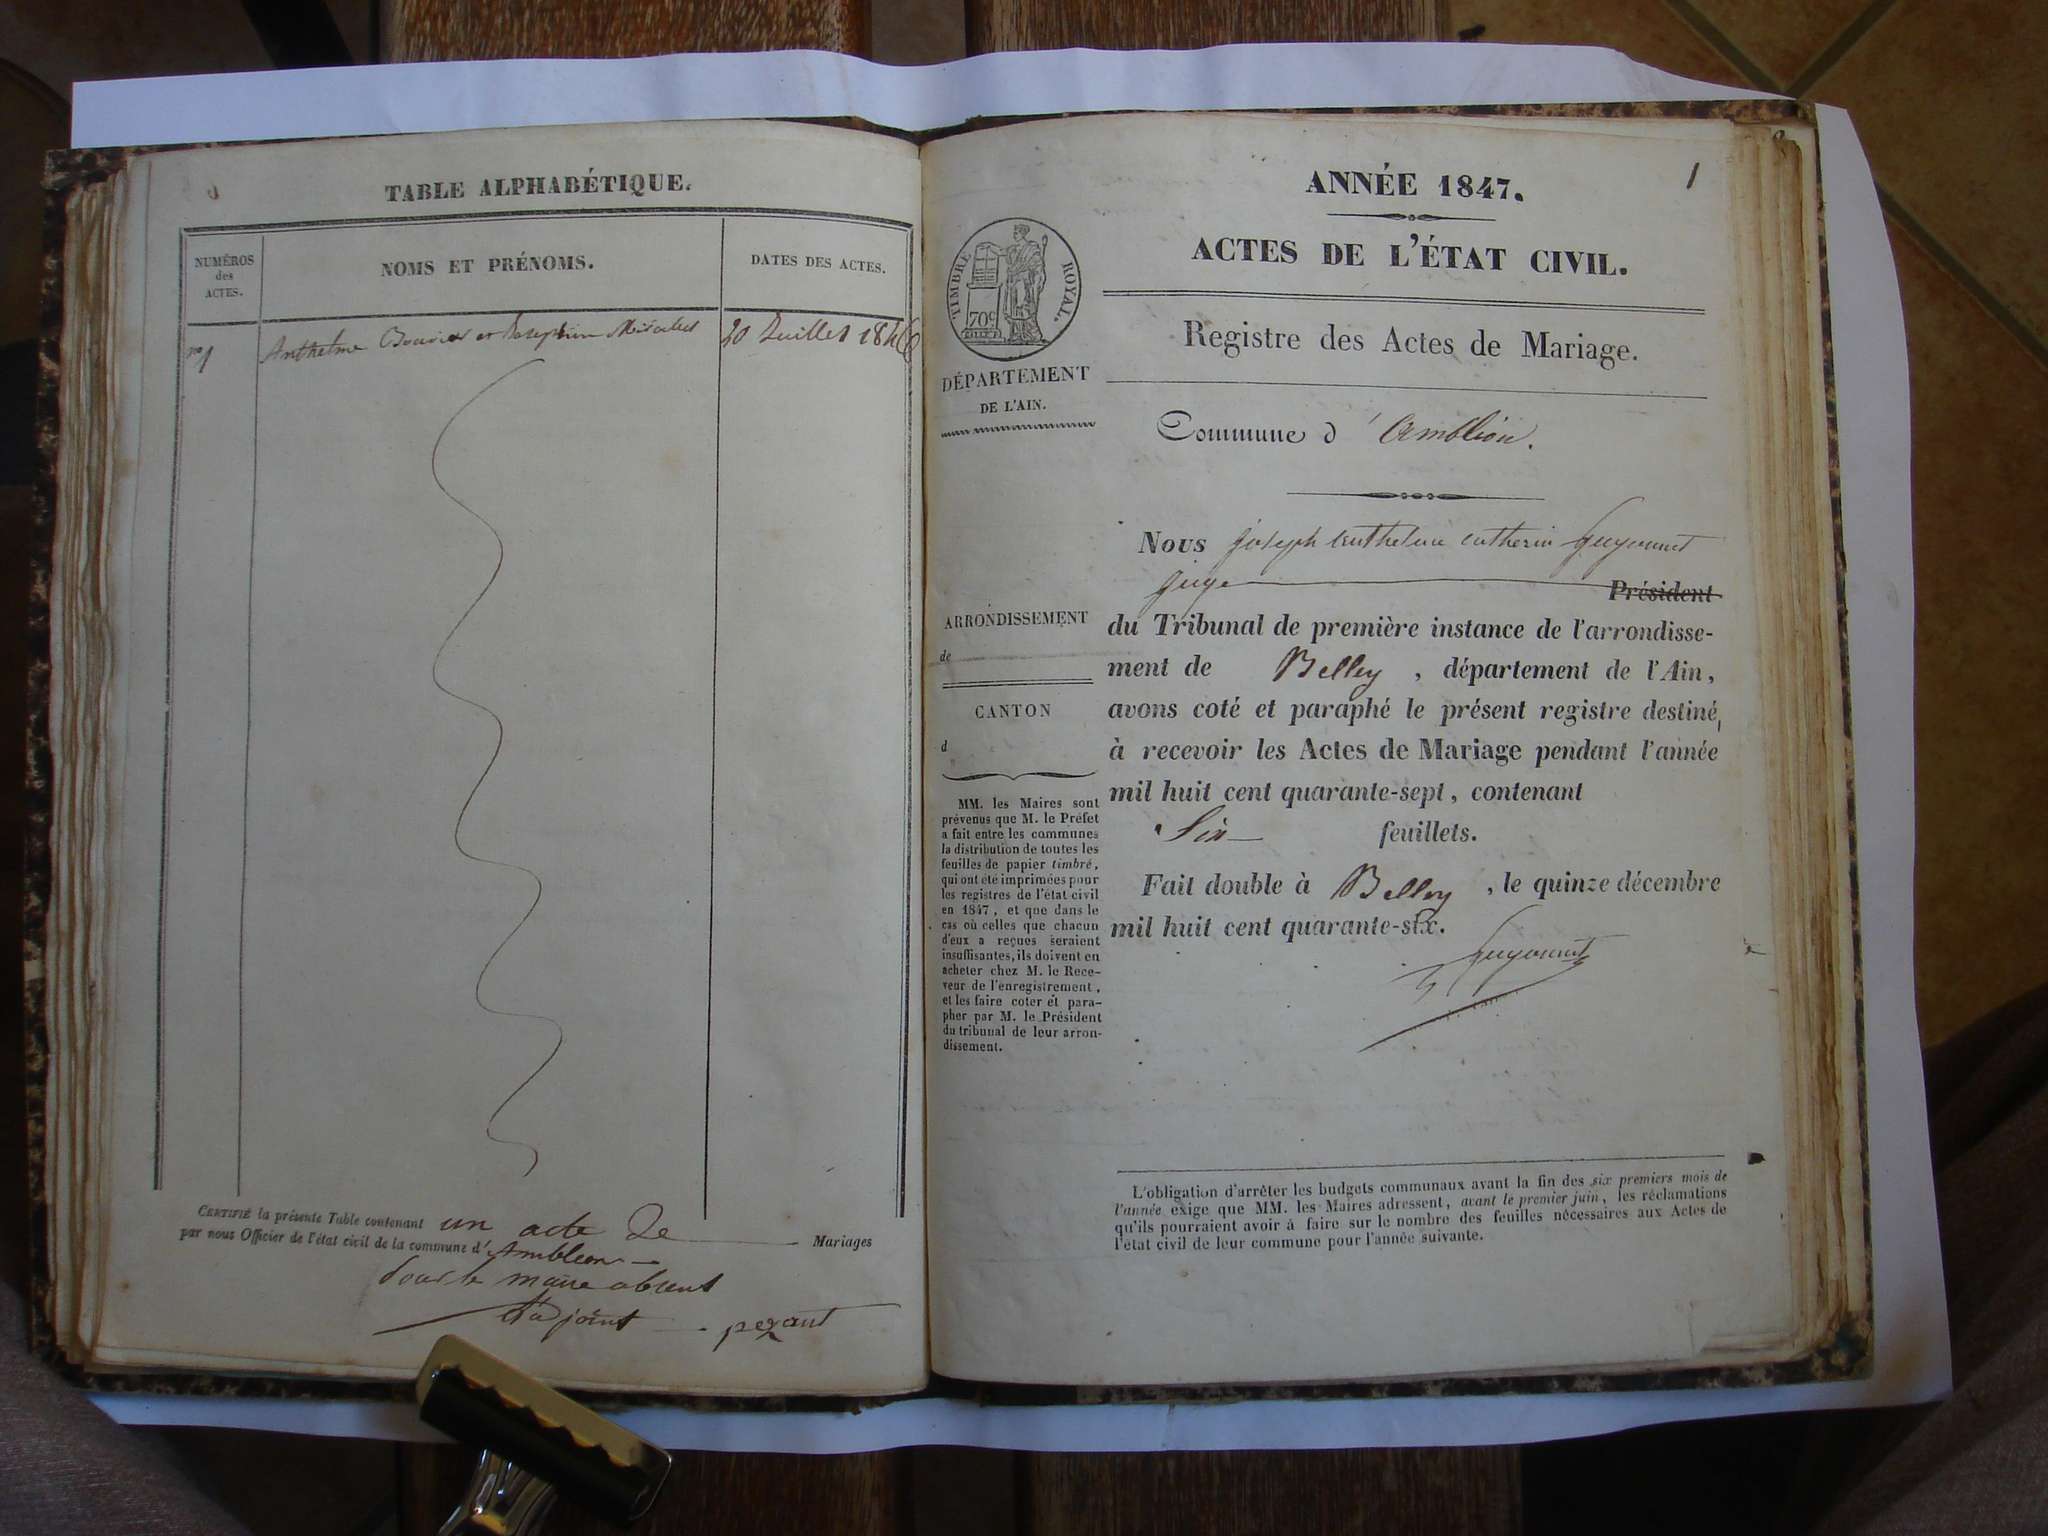 TABLE ALPHABÉTIQUE.
NUMÉROS
des
ACTES.
NOMS ET PRÉNOMS.
DATES DES ACTES.
no 1 Anthelme Bouvier et 20 Juillet 1846
CERTIFIÉ la présente Table contenant un acte De Mariages
par nous Officier de l'état civil de la commune d' Ambleon
Pour le maire absent
L'adjoint pezant
1
ANNÉE 1847.
ACTES DE L'ÉTAT CIVIL.
TIMBRE ROYAL.
70c
Registre des Actes de Mariage.
DÉPARTEMENT
DE L'AIN.
Commune d' Ambléon.
Nous Joseph Anthelme Guyonnet
juge Président
ARRONDISSEMENT
de
CANTON
d
du Tribunal de première instance de l'arrondisse-
ment de Belley, département de l'Ain,
avons coté et paraphé le présent registre destiné
à recevoir les Actes de Mariage pendant l'année
mil huit cent quarante-sept, contenant
Six feuillets.
Fait double à Belley, le quinze décembre
mil huit cent quarante-six.
Guyonnet
MM. les Maires sont
prévenus que M. le Préfet
a fait entre les communes
la distribution de toutes les
feuilles de papier timbré,
qui ont été imprimées pour
les registres de l'état civil
en 1847, et que dans le
cas où celles que chacun
d'eux a reçues seraient
insuffisantes, ils doivent en
acheter chez M. le Rece-
veur de l'enregistrement,
et les faire coter et para-
pher par M. le Président
du tribunal de leur arron-
dissement.
L'obligation d'arrêter les budgets communaux avant la fin des six premiers mois de
l'année exige que MM. les Maires adressent, avant le premier juin, les réclamations
qu'ils pourraient avoir à faire sur le nombre des feuilles nécessaires aux Actes de
l'état civil de leur commune pour l'année suivante.